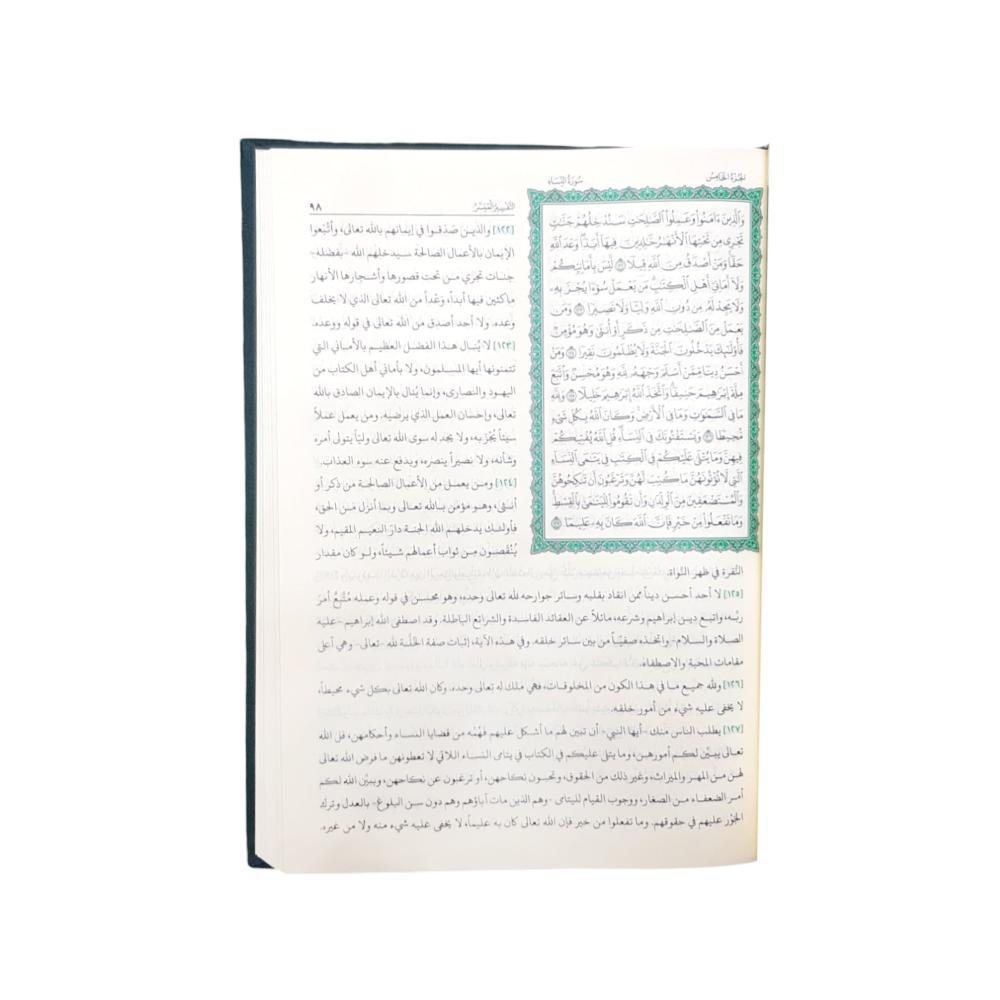 الجزء الخامس
سورة النساء
التفسير الميسر
٩٨
وَالَّذِينَ ءَامَنُوا۟ وَعَمِلُوا۟ ٱلصَّٰلِحَٰتِ سَنُدْخِلُهُمْ جَنَّٰتٍ
تَجْرِى مِن تَحْتِهَا ٱلْأَنْهَٰرُ خَٰلِدِينَ فِيهَآ أَبَدًا وَعْدَ ٱللَّهِ
حَقًّا وَمَنْ أَصْدَقُ مِنَ ٱللَّهِ قِيلًا ۝١٢٢ لَّيْسَ بِأَمَانِيِّكُمْ
وَلَآ أَمَانِىِّ أَهْلِ ٱلْكِتَٰبِ مَن يَعْمَلْ سُوٓءًا يُجْزَ بِهِۦ
وَلَا يَجِدْ لَهُۥ مِن دُونِ ٱللَّهِ وَلِيًّا وَلَا نَصِيرًا ۝١٢٣ وَمَن
يَعْمَلْ مِنَ ٱلصَّٰلِحَٰتِ مِن ذَكَرٍ أَوْ أُنثَىٰ وَهُوَ مُؤْمِنٌ
فَأُو۟لَٰٓئِكَ يَدْخُلُونَ ٱلْجَنَّةَ وَلَا يُظْلَمُونَ نَقِيرًا ۝١٢٤ وَمَنْ
أَحْسَنُ دِينًا مِّمَّنْ أَسْلَمَ وَجْهَهُۥ لِلَّهِ وَهُوَ مُحْسِنٌ وَٱتَّبَعَ
مِلَّةَ إِبْرَٰهِيمَ حَنِيفًا وَٱتَّخَذَ ٱللَّهُ إِبْرَٰهِيمَ خَلِيلًا ۝١٢٥ وَلِلَّهِ
مَا فِى ٱلسَّمَٰوَٰتِ وَمَا فِى ٱلْأَرْضِ وَكَانَ ٱللَّهُ بِكُلِّ شَىْءٍ
مُّحِيطًا ۝١٢٦ وَيَسْتَفْتُونَكَ فِى ٱلنِّسَآءِ قُلِ ٱللَّهُ يُفْتِيكُمْ
فِيهِنَّ وَمَا يُتْلَىٰ عَلَيْكُمْ فِى ٱلْكِتَٰبِ فِى يَتَٰمَى ٱلنِّسَآءِ
ٱلَّٰتِى لَا تُؤْتُونَهُنَّ مَا كُتِبَ لَهُنَّ وَتَرْغَبُونَ أَن تَنكِحُوهُنَّ
وَٱلْمُسْتَضْعَفِينَ مِنَ ٱلْوِلْدَٰنِ وَأَن تَقُومُوا۟ لِلْيَتَٰمَىٰ بِٱلْقِسْطِ
وَمَا تَفْعَلُوا۟ مِنْ خَيْرٍ فَإِنَّ ٱللَّهَ كَانَ بِهِۦ عَلِيمًا ۝١٢٧
[١٢٢] والذين صَدَقوا في إيمانهم بالله تعالى، وأتْبَعوا
الإيمان بالأعمال الصالحة سيدخلهم الله -بفضله-
جنات تجري من تحت قصورها وأشجارها الأنهار
ماكثين فيها أبداً، وَعْداً من الله تعالى الذي لا يخلف
وعده. ولا أحد أصدق من الله تعالى في قوله ووعده.
[١٢٣] لا يُنال هذا الفضل العظيم بالأماني التي
تتمنونها أيها المسلمون، ولا بأماني أهل الكتاب من
اليهود والنصارى، وإنما يُنال بالإيمان الصادق بالله
تعالى، وإحسان العمل الذي يرضيه. ومن يعمل عملاً
سيئاً يُجْزَ به، ولا يجد له سوى الله تعالى وليّاً يتولى أمره
وشأنه، ولا نصيراً ينصره، ويدفع عنه سوء العذاب.
[١٢٤] ومن يعمل من الأعمال الصالحة من ذكر أو
أنثى، وهو مؤمن بالله تعالى وبما أنزل من الحق،
فأولئك يدخلهم الله الجنة دارَ النعيم المقيم، ولا
يُنْقَصون مِن ثواب أعمالهم شيئاً، ولو كان مقدار
النُّقرة في ظهر النَّواة.
[١٢٥] لا أحد أحسن ديناً ممن انقاد بقلبه وسائر جوارحه لله تعالى وحده، وهو محسن في قوله وعمله مُتَّبِعٌ أمرَ
ربِّه، واتبع دين إبراهيم وشرعه، مائلاً عن العقائد الفاسدة والشرائع الباطلة. وقد اصطفى الله إبراهيم -عليه
الصلاة والسلام- واتخذه صفيّاً من بين سائر خلقه. وفي هذه الآية، إثبات صفة الخُلَّة لله -تعالى- وهي أعلى
مقامات المحبة والاصطفاء.
[١٢٦] ولله جميع ما في هذا الكون من المخلوقات، فهي ملك له تعالى وحده. وكان الله تعالى بكل شيء محيطاً،
لا يخفى عليه شيء من أمور خلقه.
[١٢٧] يطلب الناس منك -أيها النبي- أن تبين لهم ما أشكل عليهم فهْمُه من قضايا النساء وأحكامهن، قل الله
تعالى يبيِّن لكم أمورهن، وما يتلى عليكم في الكتاب في يتامى النساء اللاتي لا تعطونهن ما فرض الله تعالى
لهن من المهر والميراث، وغير ذلك من الحقوق، وتحبون نكاحهن، أو ترغبون عن نكاحهن، ويبيِّن الله لكم
أمر الضعفاء من الصغار، ووجوب القيام لليتامى -وهم الذين مات آباؤهم وهم دون سن البلوغ- بالعدل وترك
الجَوْر عليهم في حقوقهم. وما تفعلوا من خير فإن الله تعالى كان به عليماً، لا يخفى عليه شيء منه ولا من غيره.